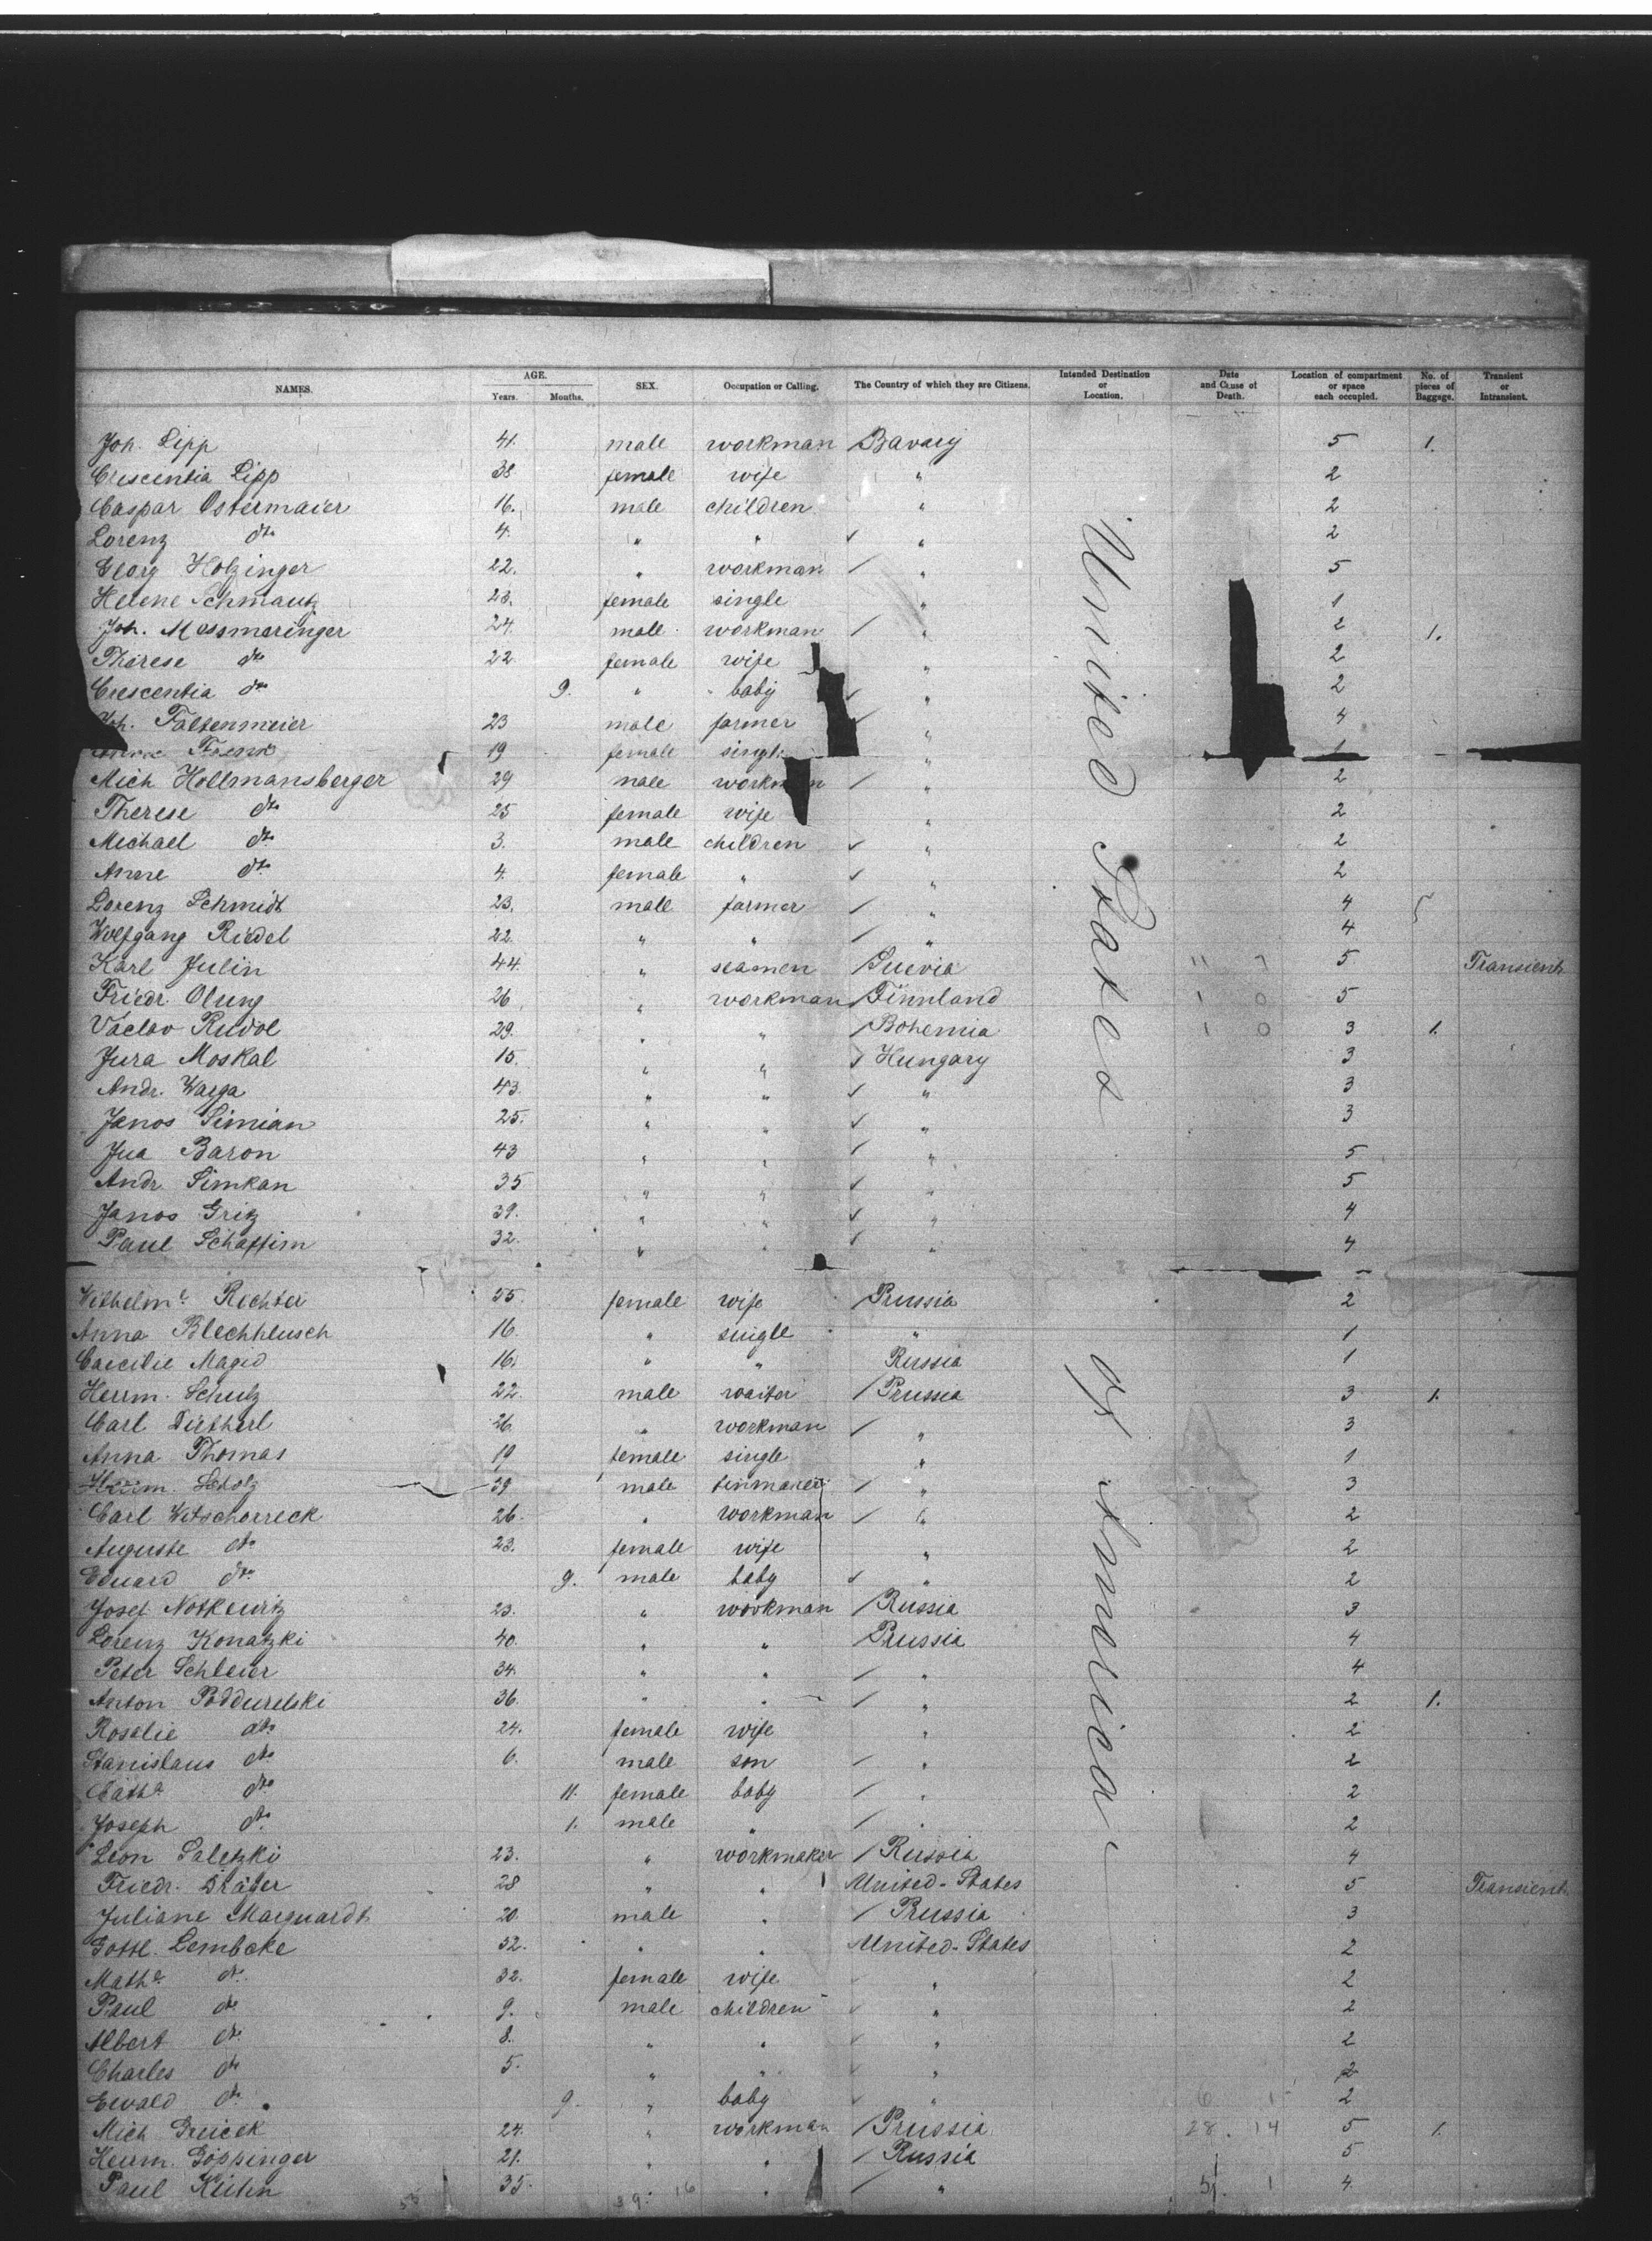 NAMES. AGE. Years. Months. SEX. Occupation or Calling. The Country of which they are Citizens. Intended Destination or Location. Date and Cause of Death. Location of compartment or space each occupied. No. of pieces of Baggage. Transient or Intransient.
Joh. Lipp 41. male workman Bavary 5 1.
Crescentia Lipp 38 female wife " 2
Caspar Ostermaier 16. male children " 2
Lorenz do 4. " " " 2
Georg Holzinger 22. " workman " 5
Helene Schmautz 23. female single " 1
Joh. Messmeringer 24. male workman " 2 1.
Therese do 22. female wife " 2
Crescentia do 9. " baby " 2
Joh. Faltenmeier 23 male farmer " 4
19 female single " 1
Mich Hollmansberger 29 male workman " 2
Therese do 25 female wife " 2
Michael do 3. male children " 2
Anne do 4. female " " 2
Lorenz Schmidt 23. male farmer " 4
Wolfgang Riedel 22. " " " 4
Karl Julin 44. " seamen Suevia 5 Transient
Friedr Olung 26 " workman Finnland 5
Václav Rudol 29. " " Bohemia 3 1.
Jura Moskal 15. " " Hungary 3
Andr. Warga 43. " " " 3
Janos Simian 25. " " " 3
Jua Baron 43 " " " 5
Andr. Simkan 35 " " " 5
Janos Gritz 39. " " " 4
Paul Schaffim 32. " " " 4
United States of America
Wilhelme Richter 55. female wife Prussia 2
Anna Blechheusch 16. " single " 1
Caecilie Magid 16. " " Russia 1
Herrm. Schulz 22. male waiter Prussia 3 1.
Carl Dietherl 26. " workman " 3
Anna Thomas 19 female single " 1
Scholz 39 male " 3
Carl Witschorreck 26. " workman " 2
Auguste do 23. female wife " 2
Eduard do 9. male baby " 2
Josef Notkewitz 23. " workman Russia 3
Lorenz Konatzki 40. " " Prussia 4
Peter Schleier 34. " " " 4
Anton Poddurelski 36. " " " 2 1.
Rosalie do 24. female wife " 2
Stanislaus do 6. male son " 2
Cathe do 11. female baby " 2
Joseph do 1. male " " 2
Leon Saletzki 23. " workmaker Russia 4
Friedr. Dräger 28 " " United-States 5 Transient
Juliane Marquardt 20. male " Prussia 3
Gottl. Lembcke 32. " " United-States 2
Mathe do 32. female wife " 2
Paul do 9. male children " 2
Albert do 8. " " " 2
Charles do 5. " " " 2
Ewald do 9. " baby " 2
Mich 24. " workman Prussia 28. 14 5 1.
Herrm. Göppinger 21. " " Russia 5
Paul Kühn 35. " " " 51. 1 4.
39. 16